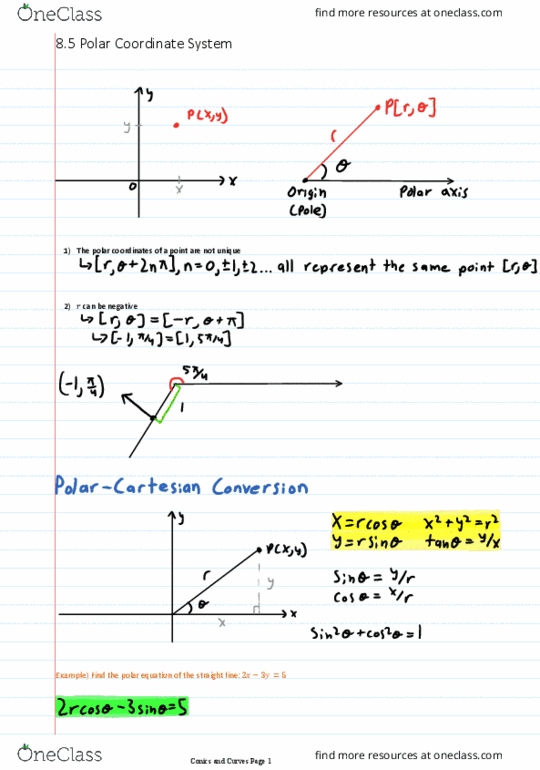 OneClass find more resources at oneclass.com
8.5 Polar Coordinate System
y
y
P(x,y)
P[r,θ]
r
θ
0
x
x
Origin
(Pole)
Polar axis
1) The polar coordinates of a point are not unique
↳[r,θ+2nπ], n=0,±1,±2... all represent the same point [r,θ]
2) r can be negative
↳[r,θ]=[-r,θ+π]
↳[-1,π/4]=[1,5π/4]
5π/4
(-1,π/4)
1
Polar-Cartesian Conversion
y
P(x,y)
r
y
θ
x
x
x=rcosθ x²+y²=r²
y=rsinθ tanθ=y/x
sinθ=y/r
cosθ=x/r
sin²θ+cos²θ=1
Example) Find the polar equation of the straight line: 2x − 3y = 5
2rcosθ-3sinθ=5
Conics and Curves Page 1
OneClass find more resources at oneclass.com